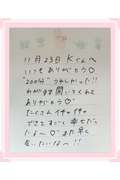 11月23日 Kくんへ
いつもありがとう♡
"200分" うれしかった!!
わがまま聞いてくれて
ありがとう♡
たくさんイチャイチャ
できてすごく幸せだっ
たよ〜♡ また早く
会いたいな〜!!